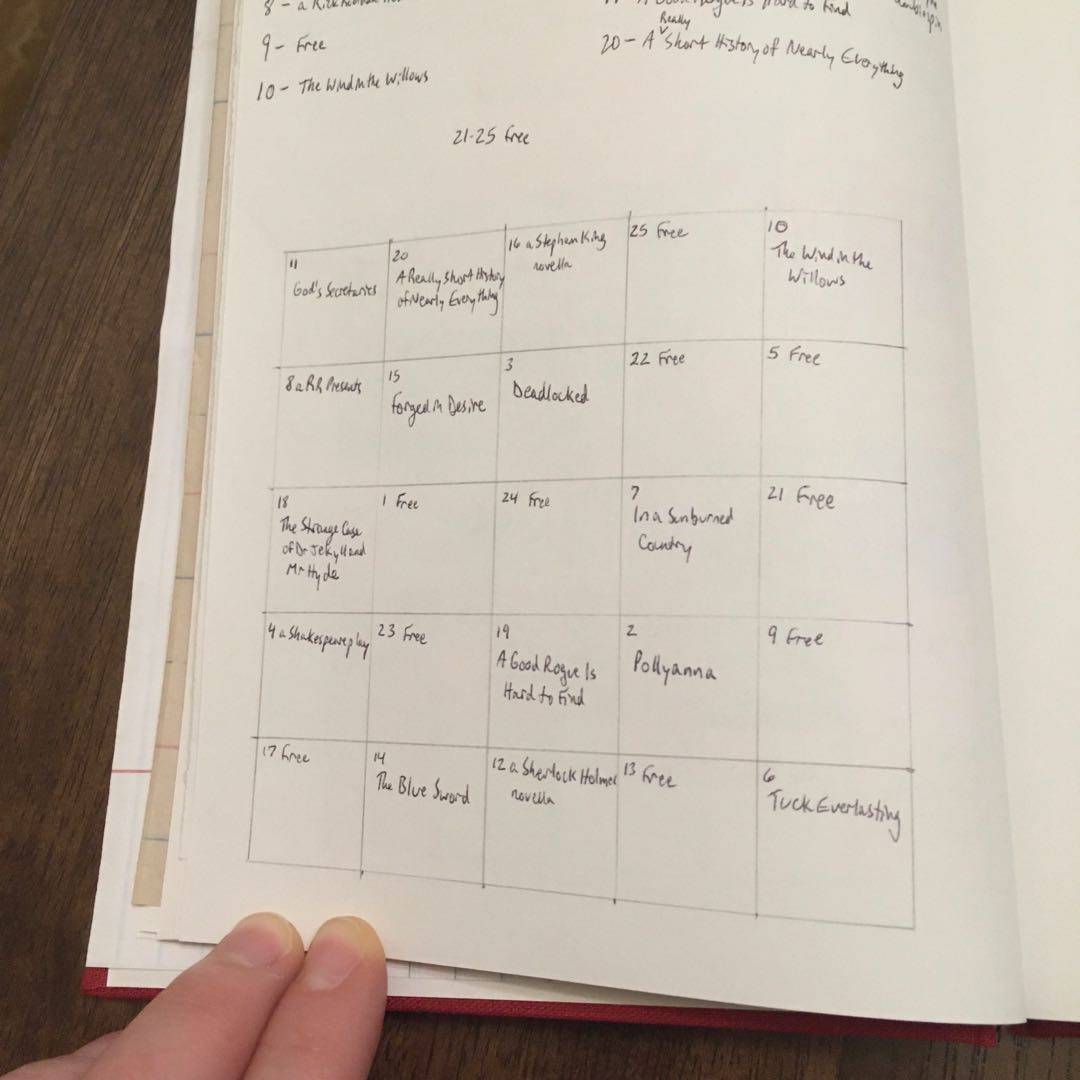 8 - a
9 - Free
10 - The Wind in the Willows
Hard to Find
Really
20 - A ∨ Short History of Nearly Everything
21-25 Free
11
God's Secretaries
20
A Really Short History
of Nearly Everything
16 a Stephen King
novella
25 Free
10
The Wind in the
Willows
8 a RR Presents
15
Forged in Desire
3
Deadlocked
22 Free
5 Free
18
The Strange Case
of Dr Jekyll and
Mr Hyde
1 Free
24 Free
7
In a Sunburned
Country
21 Free
4 a Shakespeare play
23 Free
19
A Good Rogue Is
Hard to Find
2
Pollyanna
9 Free
17 Free
14
The Blue Sword
12 a Sherlock Holmes
novella
13 Free
6
Tuck Everlasting